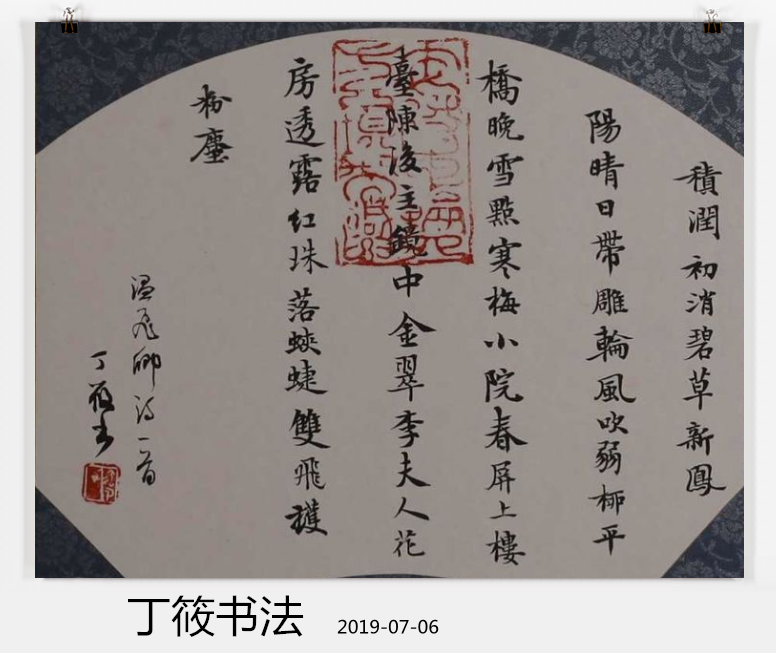 積潤初消碧草新鳳
陽晴日帶雕輪風吹弱柳平
橋晚雪點寒梅小院春屏上樓
臺陳後主鏡中金翠李夫人花
房透露紅珠落蛺蜨雙飛護
粉塵
温飛卿詩一首
丁筱书
丁筱书法 2019-07-06